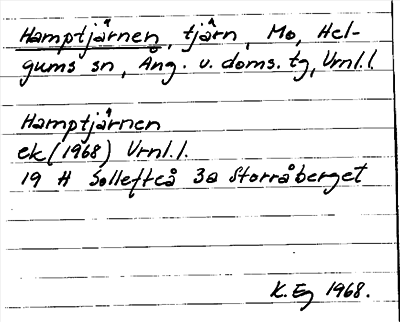 Hamptjärnen, tjärn, Mo, Hel-
gums sn, Ång. v. doms. tg, Vrnl.l.
Hamptjärnen
ek (1968) Vrnl.l.
19 H Sollefteå 3a Storråberget
K. Eg 1968.